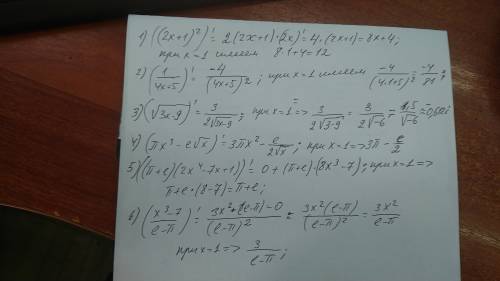 1) ((2x+1)²)' = 2(2x+1)·(2x)' = 4·(2x+1) = 8x+4;
при x=1 имеем 8·1+4=12
2) (1/(4x+5))' = -4/(4x+5)²; при x=1 имеем -4/(4·1+5)² = -4/81;
3) (√(3x-9))' = 3/(2√(3x-9)); при x=1 => 3/(2√(3-9)) = 3/(2√-6) = 1,5/√-6 =
4) (πx³-e√x)' = 3πx² - e/(2√x); при x=1 => 3π - e/2
5) ((π+e)(2x⁴-7x+1))' = 0+(π+e)·(8x³-7); при x=1 =>
π+e·(8-7)=π+e;
6) ((x³-7)/(e-π))' = (3x²·(e-π)-0)/(e-π)² = 3x²(e-π)/(e-π)² = 3x²/(e-π)
при x=1 => 3/(e-π);